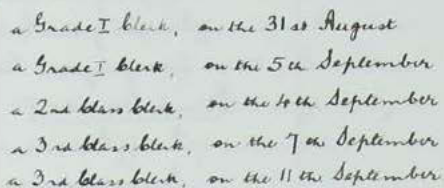 a Grade I Clerk, on the 31st August
a Grade I Clerk, on the 5th September
a 2nd Class Clerk, on the 4th September
a 3rd Class Clerk, on the 7th September
a 3rd Class Clerk, on the 11th September